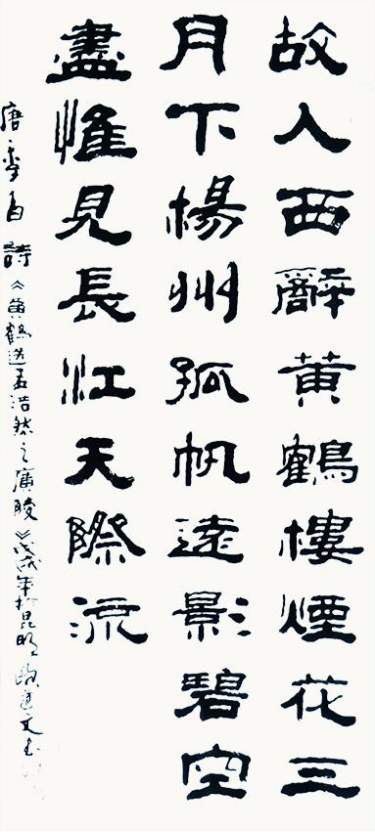 故人西辭黄鶴樓煙花三
月下楊州孤帆遠影碧空
盡惟見長江天際流
唐李白詩《黄鶴送孟浩然之廣陵》戊戌年於昆明